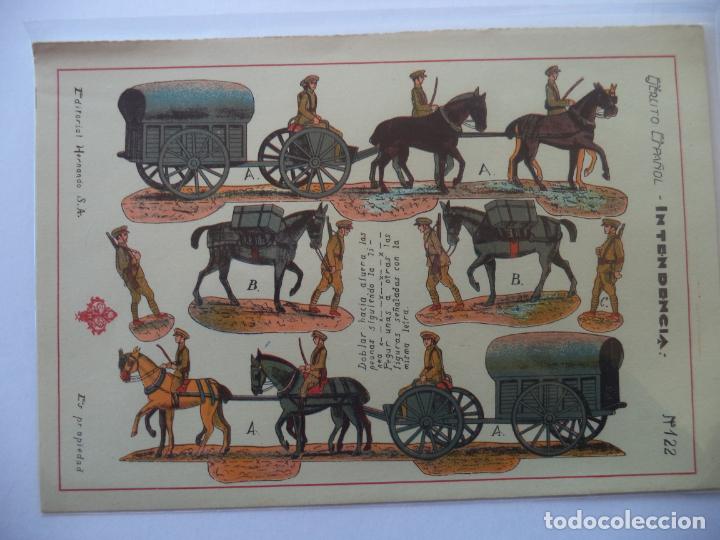 EJÉRCITO ESPAÑOL - INTENDENCIA:
Nº 122
Editorial Hernando S.A.
A.
A.
B.
B.
C.
Doblar hacia afuera las
peanas siguiendo la lí-
nea x—x—x—x—x—x—
Pegar unas a otras las
figuras señaladas con la
misma letra.
A.
A.
Es propiedad
todocoleccion.net